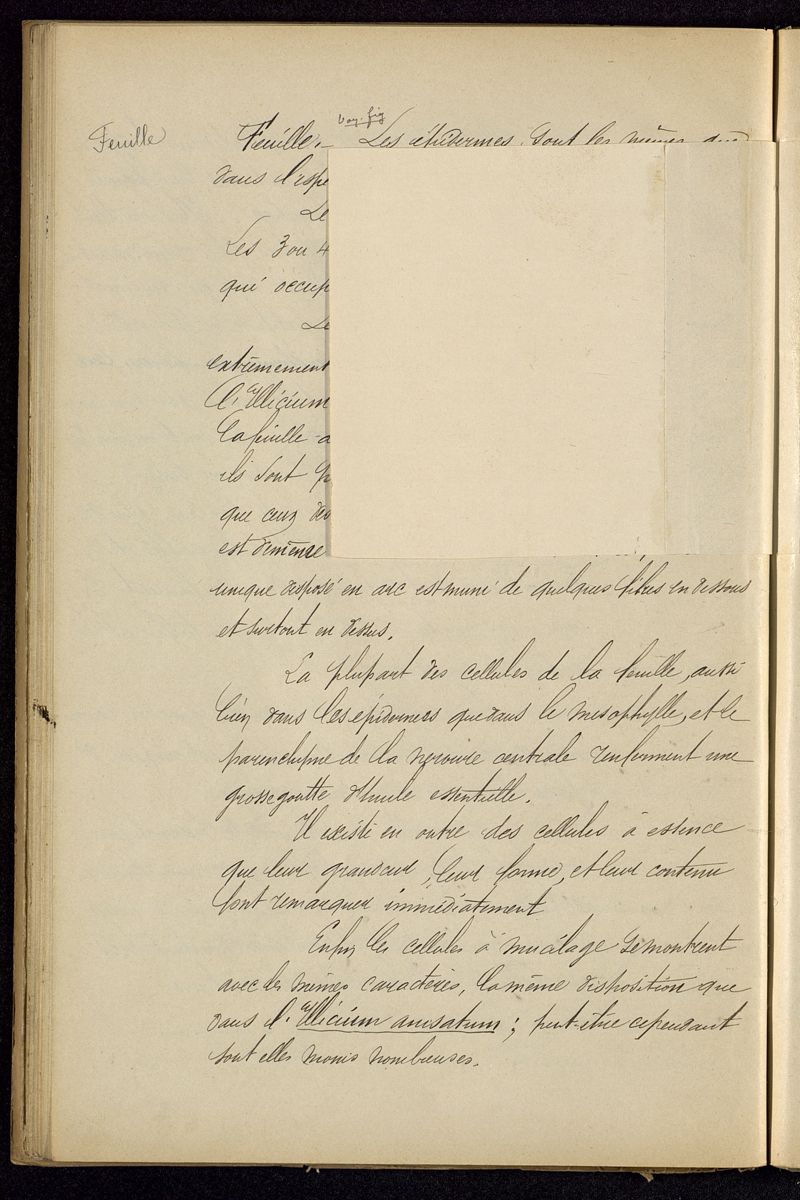 Feuille
voy. fig
Feuille. — Les épidermes sont les mêmes que
dans l'espè
Le
Les 3 ou 4
qui occup
Le
extrêmement
l'Illicium
La feuille a
ils sont
que ceux des
est
unique disposé en arc est muni de quelques fibres en dessous
et surtout en dessus.
La plupart des cellules de la feuille, aussi
bien dans les épidermes que dans le mésophylle, et le
parenchyme de la nervure centrale renferment une
grosse goutte d'huile essentielle.
Il existe en outre des cellules à essence
que leur grandeur, leur forme, et leur contenu
font remarquer immédiatement
Enfin les cellules à mucilage se montrent
avec les mêmes caractères, la même disposition que
dans l'Illicium anisatum ; peut-être cependant
sont elles moins nombreuses.